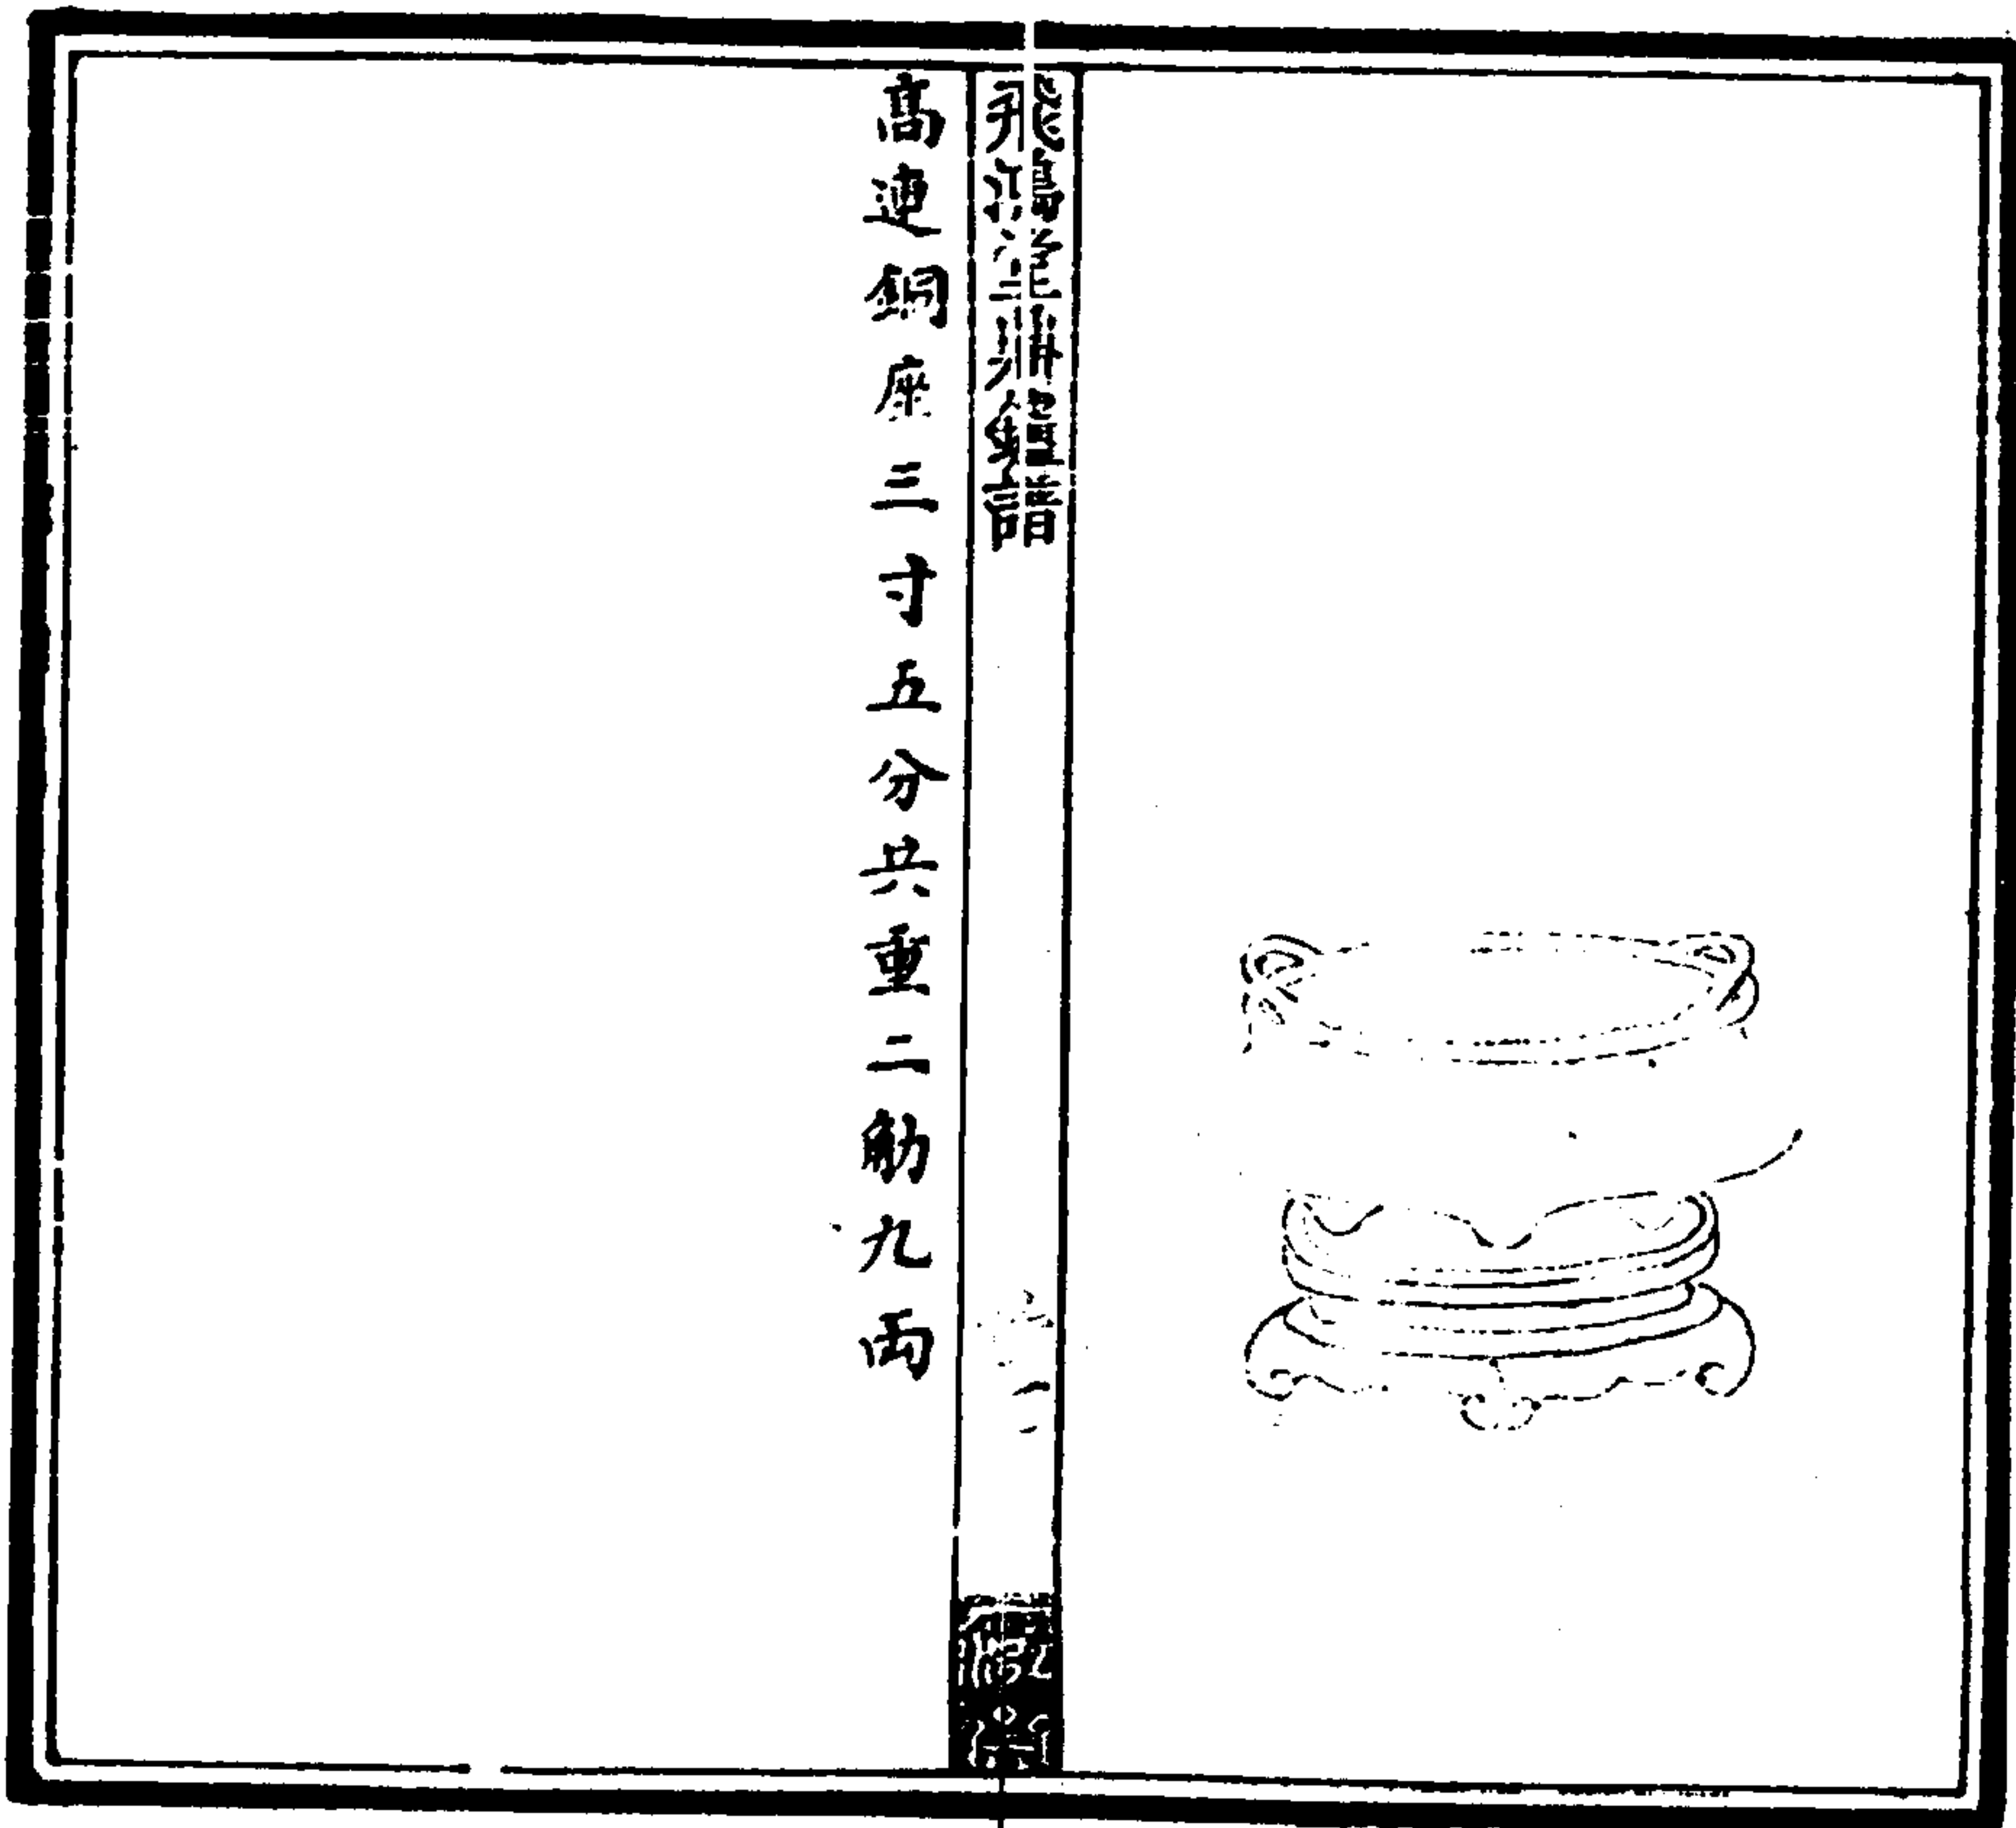 飛鴻堂鼎鑪譜
高連銅座三寸五分共重二觔九兩